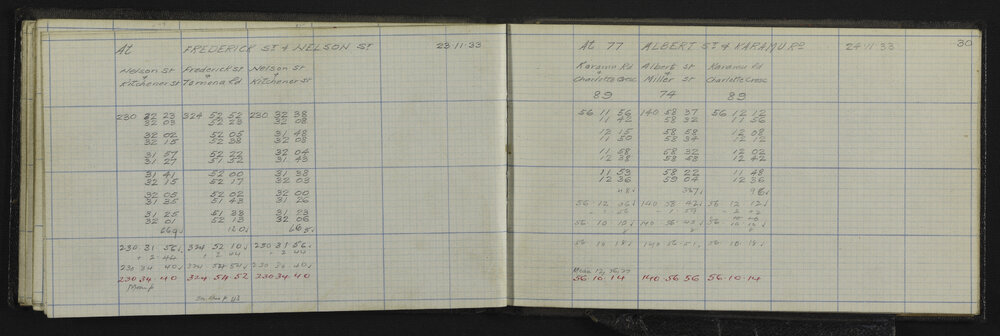 At FREDERICK ST & NELSON ST 23·11·33
Nelson St Frederick St Nelson St
& & &
Kitchener St Tomoana Rd Kitchener St
230 32 23 324 52 52 230 32 38
32 03 52 23 32 08
32 02 52 05 31 48
32 15 52 38 32 08
31 57 52 22 32 04
31 27 51 32 31 43
31 41 52 00 31 38
32 15 52 17 32 03
32 05 52 02 32 00
31 35 51 43 31 26
31 25 51 38 31 23
32 01 52 13 32 06
230 31 56 324 52 10 230 31 56
+ 2 44 + 2 44 + 2 44
230 34 40 324 54 54 230 34 40
230·34·40 324 54·52 230 34·40
At 77 ALBERT ST & KARAMU RD 24·11·33 30
Karamu Rd Albert St Karamu Rd
& & &
Charlotte Cresc Miller St Charlotte Cresc
89 74 89
56 11 56 140 58 37 56 12 12
11 42 58 32 11 56
12 15 58 58 12 08
11 50 58 34 12 12
11 58 58 32 12 02
12 38 58 58 12 42
11 53 58 22 11 48
12 36 59 04 12 36
56·10·14 140 56 56 56·10·14